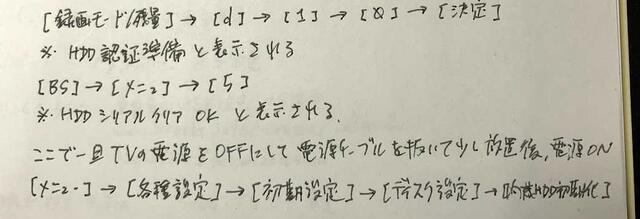 [録画モード/残量]→[d]→[1]→[8]→[決定]
※ HDD 認証準備 と表示される
[BS]→[メニュ]→[5]
※ HDD シリアルクリア OK と表示される.
ここで一旦TVの電源をOFFにして電源ケーブルを抜いて少し放置後、電源ON
[メニュー]→[各種設定]→[初期設定]→[ディスク設定]→[内蔵HDD初期化]